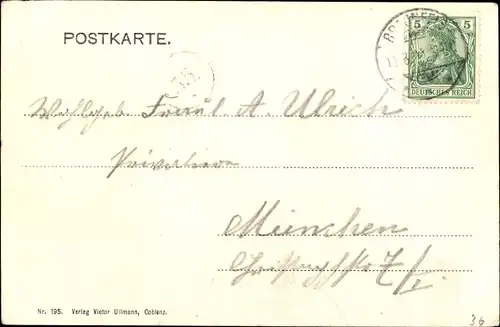 POSTKARTE.
5 5
DEUTSCHES REICH
Wohlgeb Fräul A. Ulrich
München
7/I.
Nr. 195. Verlag Victor Ullmann, Coblenz.
36